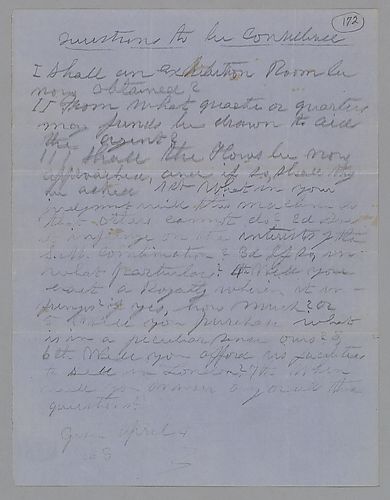 172
Questions to be Considered
I Shall an exhibition Room be
now obtained?
II From what quarter or quarters
may funds be drawn to aid
the
III Shall the Howes be now
approached, and if so, shall they
be asked 1st What in your
judgment will this machine do
that others cannot do? 2d Does
it infringe on the interests of the
Combination? 3d If so, in
what particular? 4th Will you
exact a Royalty where it in-
fringes? if yes, how much? Or
5 will you purchase what
is in a peculiar sense ours? &
6th Will you afford us facilities
to sell in London? 7th When
will you answer any or all these
questions?
April